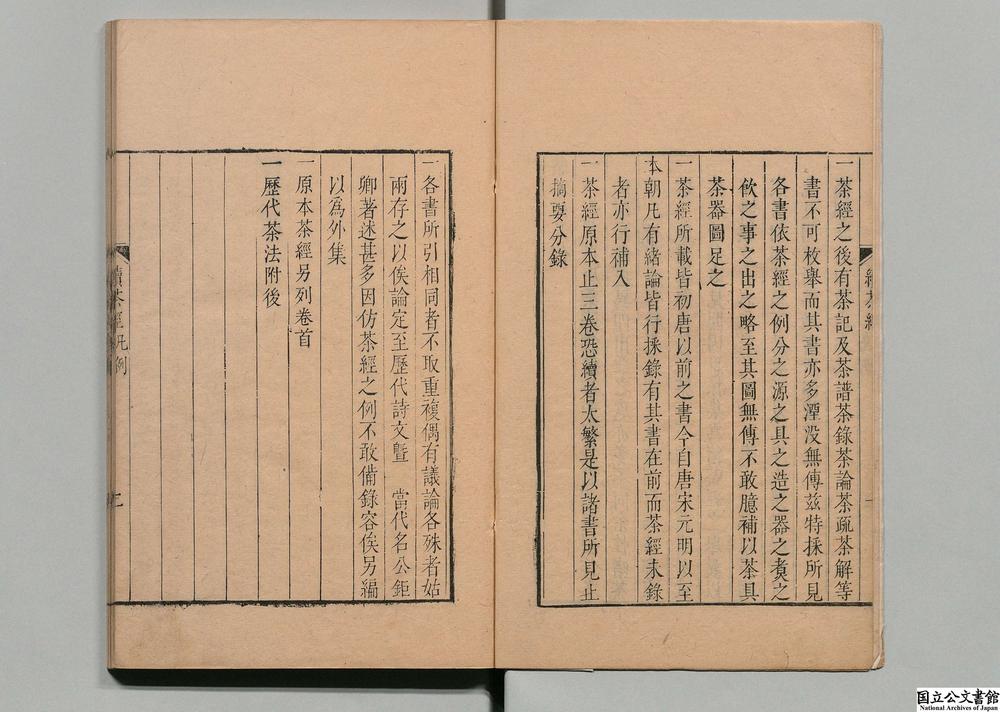 一茶經之後有茶記及茶譜茶錄茶論茶疏茶解等
書不可枚舉而其書亦多湮没無傳茲特採所見
各書依茶經之例分之源之具之造之器之煑之
飲之事之出之略至其圖無傳不敢臆補以茶具
茶器圖足之
一茶經所載皆初唐以前之書今自唐宋元明以至
本朝凡有緒論皆行採錄有其書在前而茶經未錄
者亦行補入
一茶經原本止三卷恐續者太繁是以諸書所見止
摘要分錄
一各書所引相同者不取重複偶有議論各殊者姑
兩存之以俟論定至歷代詩文暨　當代名公鉅
卿著述甚多因仿茶經之例不敢備錄容俟另編
以爲外集
一原本茶經另列卷首
一歷代茶法附後
續茶經凡例
二
国立公文書館
National Archives of Japan